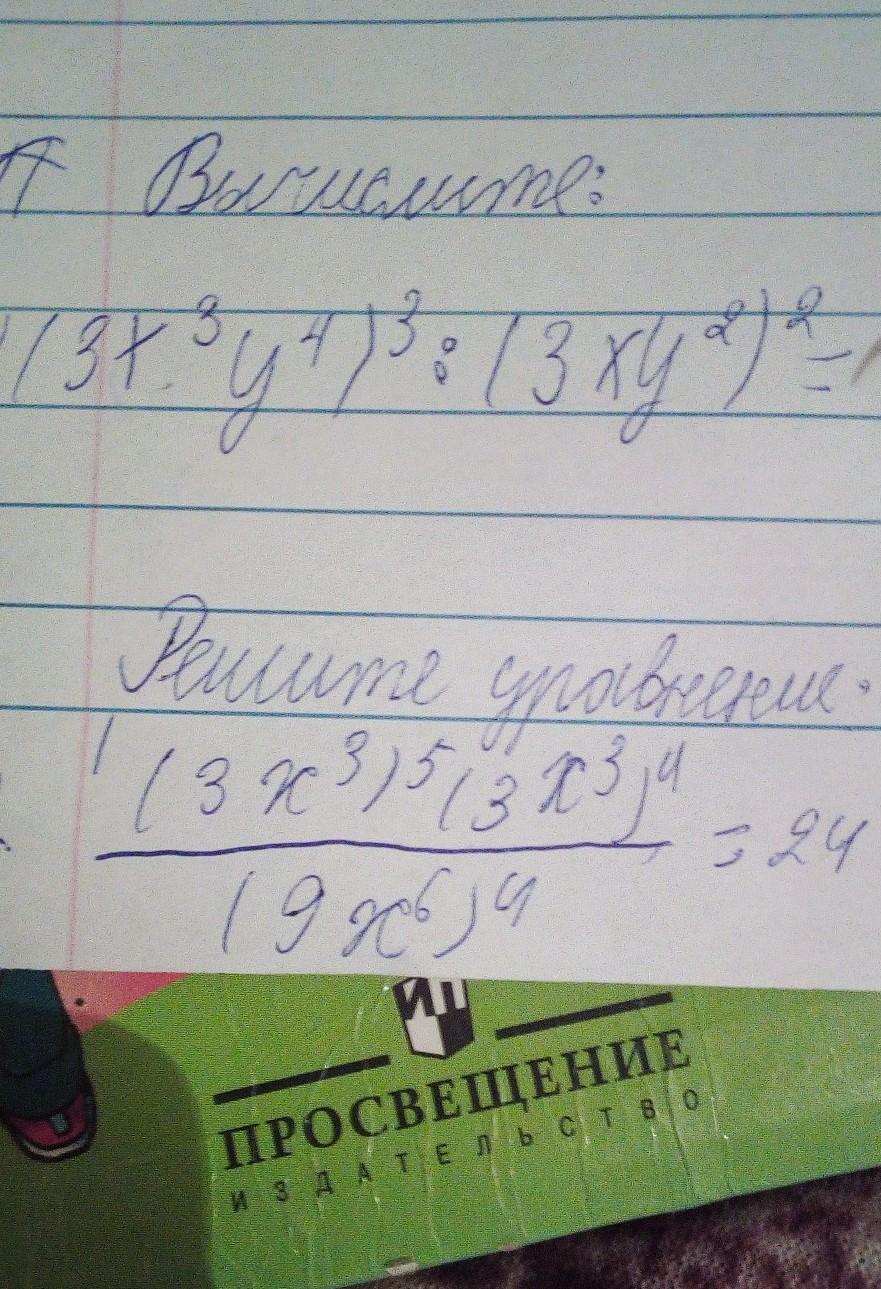 Вычислите:
(3x³y⁴)³ : (3xy²)² =
Решите уравнение.
(3x³)⁵(3x³)⁴
/(9x⁶)⁴ = 24
ИП
ПРОСВЕЩЕНИЕ
ИЗДАТЕЛЬСТВО